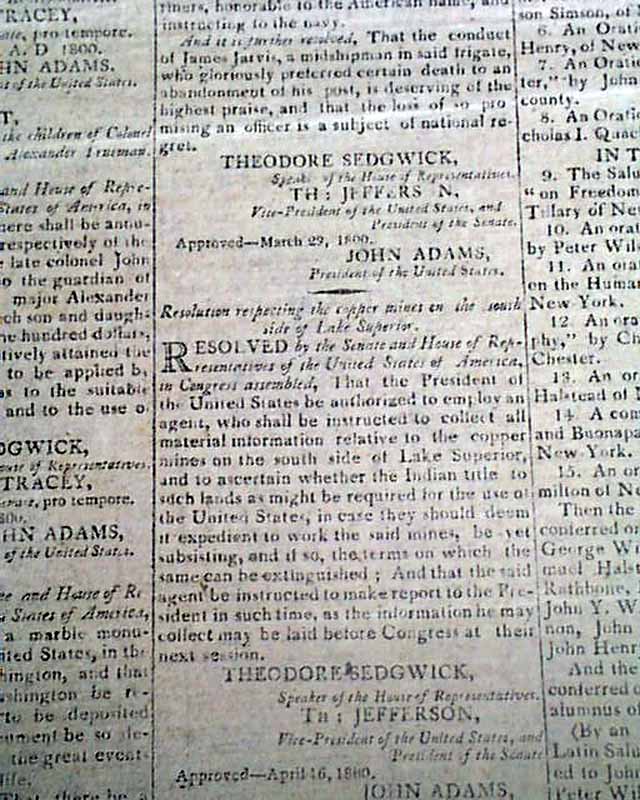 TRACEY,
pro tempore.
A. D 1800.
HN ADAMS,
of the United States.
T,
the children of Colonel
Alexander Trueman.
and House of Repre-
States of America, in
here shall be annu-
respectively of the
late colonel John
o the guardian of
major Alexander
ch son and daugh-
ne hundred dollars,
tively attained the
to be applied by
as to the suitable
and to the use o
DGWICK,
of Representatives.
TRACEY,
pro tempore.
800.
HN ADAMS,
of the United States.
and House of Re
States of America,
a marble monu-
ited States, in the
hington, and that
shington be re-
to be deposited
ument be so de-
the great event-
life.
That there be a
riners, honorable to the American name, and
instructing to the navy.
And it is further resolved, That the conduct
of James Jarvis, a midshipman in said frigate,
who gloriously preferred certain death to an
abandonment of his post, is deserving of the
highest praise, and that the loss of so pro
mising an officer is a subject of national re-
gret.
THEODORE SEDGWICK,
Speaker of the House of Representatives.
TH: JEFFERS N,
Vice-President of the United States, and
President of the Senate.
Approved—March 29, 1800.
JOHN ADAMS,
President of the United States.
Resolution respecting the copper mines on the south
side of Lake Superior.
RESOLVED by the Senate and House of Rep-
resentatives of the United States of America,
in Congress assembled, That the President of
the United States be authorized to employ an
agent, who shall be instructed to collect all
material information relative to the copper
mines on the south side of Lake Superior,
and to ascertain whether the Indian title to
such lands as might be required for the use of
the United States, in case they should deem
it expedient to work the said mines, be yet
subsisting, and if so, the terms on which the
same can be extinguished; And that the said
agent be instructed to make report to the Pre-
sident in such time, as the information he may
collect may be laid before Congress at their
next session.
THEODORE SEDGWICK,
Speaker of the House of Representatives.
TH: JEFFERSON,
Vice-President of the United States, and
President of the Senate
Approved—April 16, 1800.
JOHN ADAMS,
son Simson, of
6. An Orati
Henry, of New
7. An Oratio
ter," by John
county.
8. An Orat
cholas I. Quac
IN T
9. The Salu
"on Freedom
Tillary of Ne
10. An orat
by Peter Wils
11. An orat
on the Human
New York.
12. An ora
phy," by Ch
Chester.
13. An or
Halstead of
14. A com
and Buonapa
New York.
15. An or
milton of Ne
Then the
conferred on
George Wi
muel Halst
Rathbone,
John Y. W
non, John
John Henry
And the
conferred o
alumnus of
(By an
Latin Salut
ed to John
Peter Wil